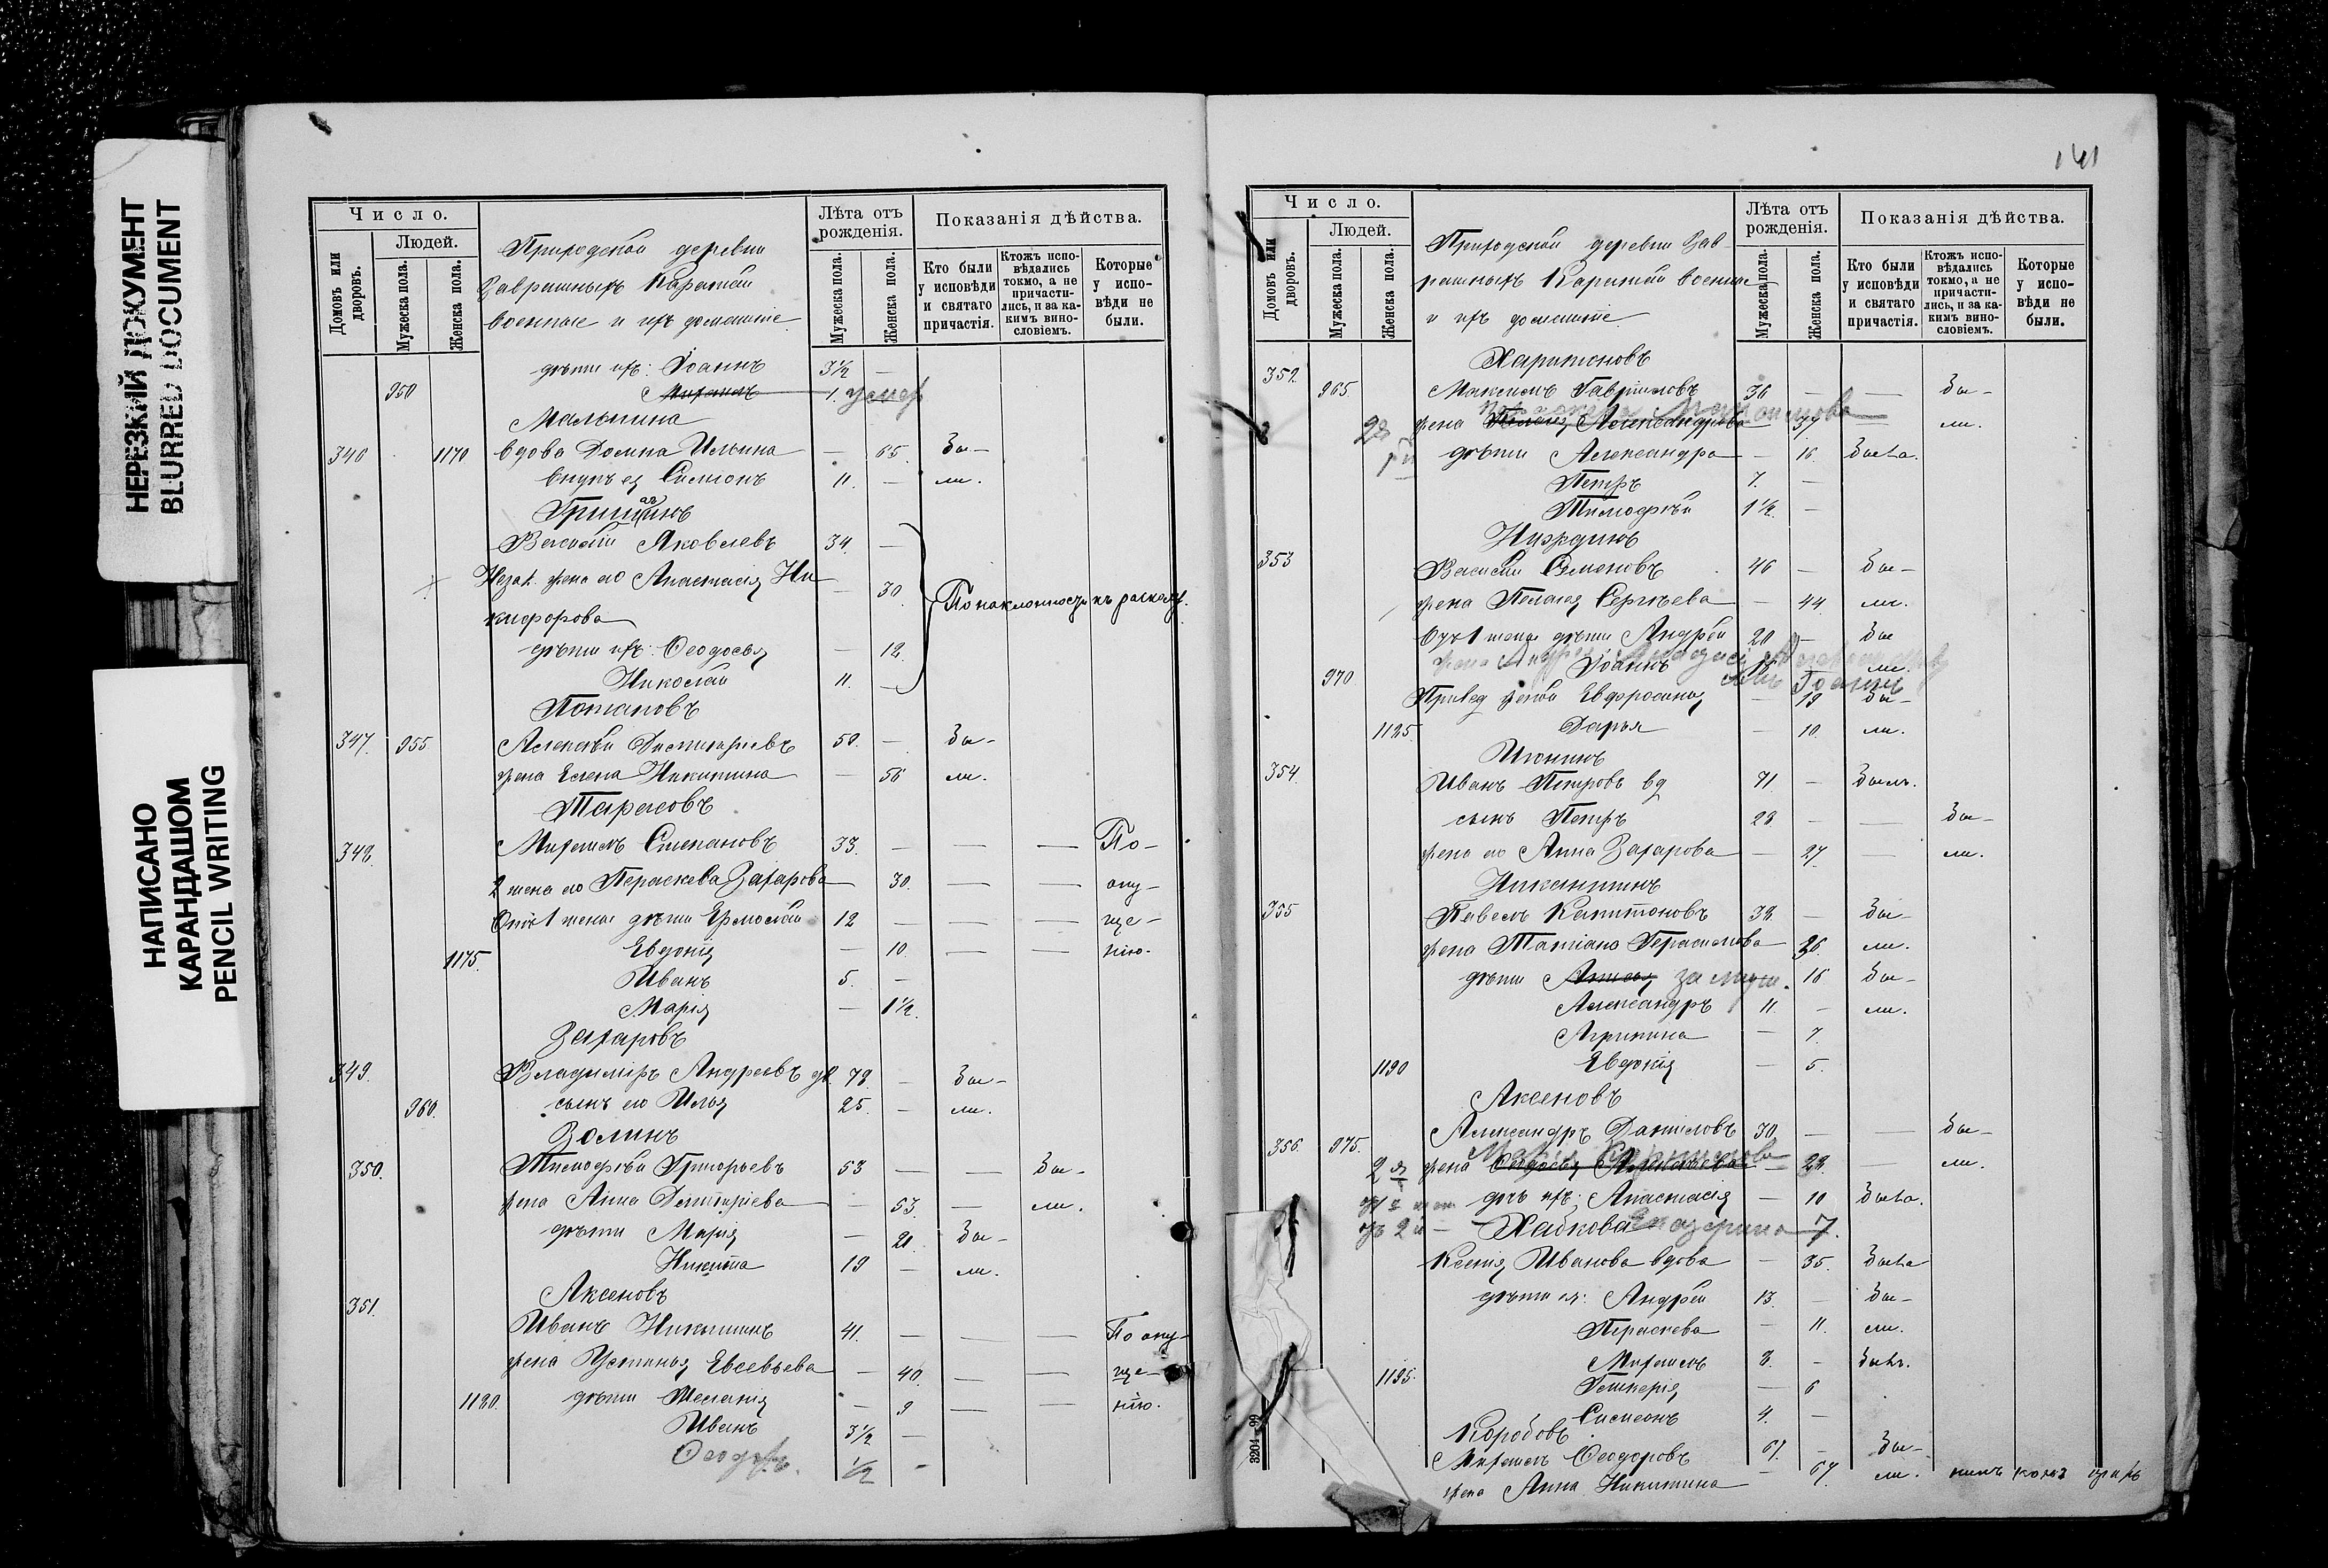 НЕРЕЗКИЙ ДОКУМЕНТ
BLURRED DOCUMENT
НАПИСАНО
КАРАНДАШОМ
PENCIL WRITING
Число.
Людей.
Домовъ или дворовъ.
Мужеска пола.
Женска пола.
Приходской деревни
военные и ихъ домашніе
Лѣта отъ рожденія.
Мужеска пола.
Женска пола.
Показанія дѣйства.
Кто были у исповѣди и святаго причастія.
Ктожъ исповѣдались токмо, а не причастились, и за какимъ винословіемъ.
Которые у исповѣди не были.
дѣти ихъ: Іоаннъ 3½ —
950 1. умер
Малькина
346 1170 вдова Домна Ильина — 65 Бы-
внукъ ея Симіонъ 11. — ли.
Василій Яковлевъ 34. —
Незак. жена его Анастасія Ни- — 30. По наклонности къ расколу.
кифорова
дѣти ихъ: Ѳеодосья — 12.
Николай 11. —
Потаповъ
347. 955 Алексѣй Димитріевъ 50. — Бы-
жена Елена Никитина — 56 ли.
Тарасовъ
348. Михаилъ Степановъ 33. — — — По-
2 жена его Параскева Захарова 30. — — опу-
Отъ 1 жены дѣти Ермолай 12 — — — ще-
1175. Евдокія — 10. — — нію.
Иванъ 5. —
Марія — 1½.
Захаровъ
349. Владиміръ Андреевъ вд. 78. — Бы-
960. сынъ его Илья 25. — ли.
Золинъ
350. Тимофѣй Григорьевъ 53 — — Бы-
жена Анна Димитріева — 53. — ли.
дѣти Марія — 21. Бы-
Никита 19 — ли.
Аксеновъ
351. Иванъ Никитинъ 41. — — — По опу-
жена Устинья Евсевьева — 40. — — ще-
1180. дѣти Меланія — 9 — — нію.
Иванъ 3½ —
Ѳеодоръ. ½ -
141
Число.
Людей.
Домовъ или дворовъ.
Мужеска пола.
Женска пола.
Приходской деревни Зав-
и ихъ домашніе
Лѣта отъ рожденія.
Мужеска пола.
Женска пола.
Показанія дѣйства.
Кто были у исповѣди и святаго причастія.
Ктожъ исповѣдались токмо, а не причастились, и за какимъ винословіемъ.
Которые у исповѣди не были.
Харитоновъ
352. 965. Максимъ Гавриловъ 36 — — Бы-
2я жена Александрова 37 ли.
дѣти Александра — 16. Была.
Петръ 7. —
Тимофѣй 1½. —
Нуждинъ
353 Василій Семеновъ 46 — Бы-
жена Пелагея Сергѣева — 44. ли.
От 1 жены дѣти Андрей 20 — Бы
970 Іоаннъ ли.
Привед. дѣти Евфросинія — 19 Бы-
1185. Дарья — 10. ли.
Июнинъ
354. Иванъ Петровъ вд 71 — Былъ.
сынъ Петръ 28. — — Бы-
жена его Анна Захарова — 27. — ли.
Никашинъ
355 Павелъ Капитоновъ 38 — Бы-
жена Татіана Герасимова 36. ли.
дѣти за муж. 16 Бы-
Александръ 11. — ли.
Агрипина — 7.
1190 Евдокія — 5.
Аксеновъ
356. 975. Александръ Даниловъ 30. — — Бы-
2я жена — 28. — ли.
дочь ихъ: Анастасія — 10 Была.
Хабкова Екатерина 7.
Ксенія Иванова вдова — 35. Была
дѣти ея: Андрей 13. — Бы-
Параскева — 11. ли.
Михаилъ 8. — Былъ.
1195. Гликерія — 6
Симеонъ 4. —
Коробовъ
Михаилъ Ѳеодоровъ 67. — Бы-
жена Анна Никитина — 67. ли.
3204—99